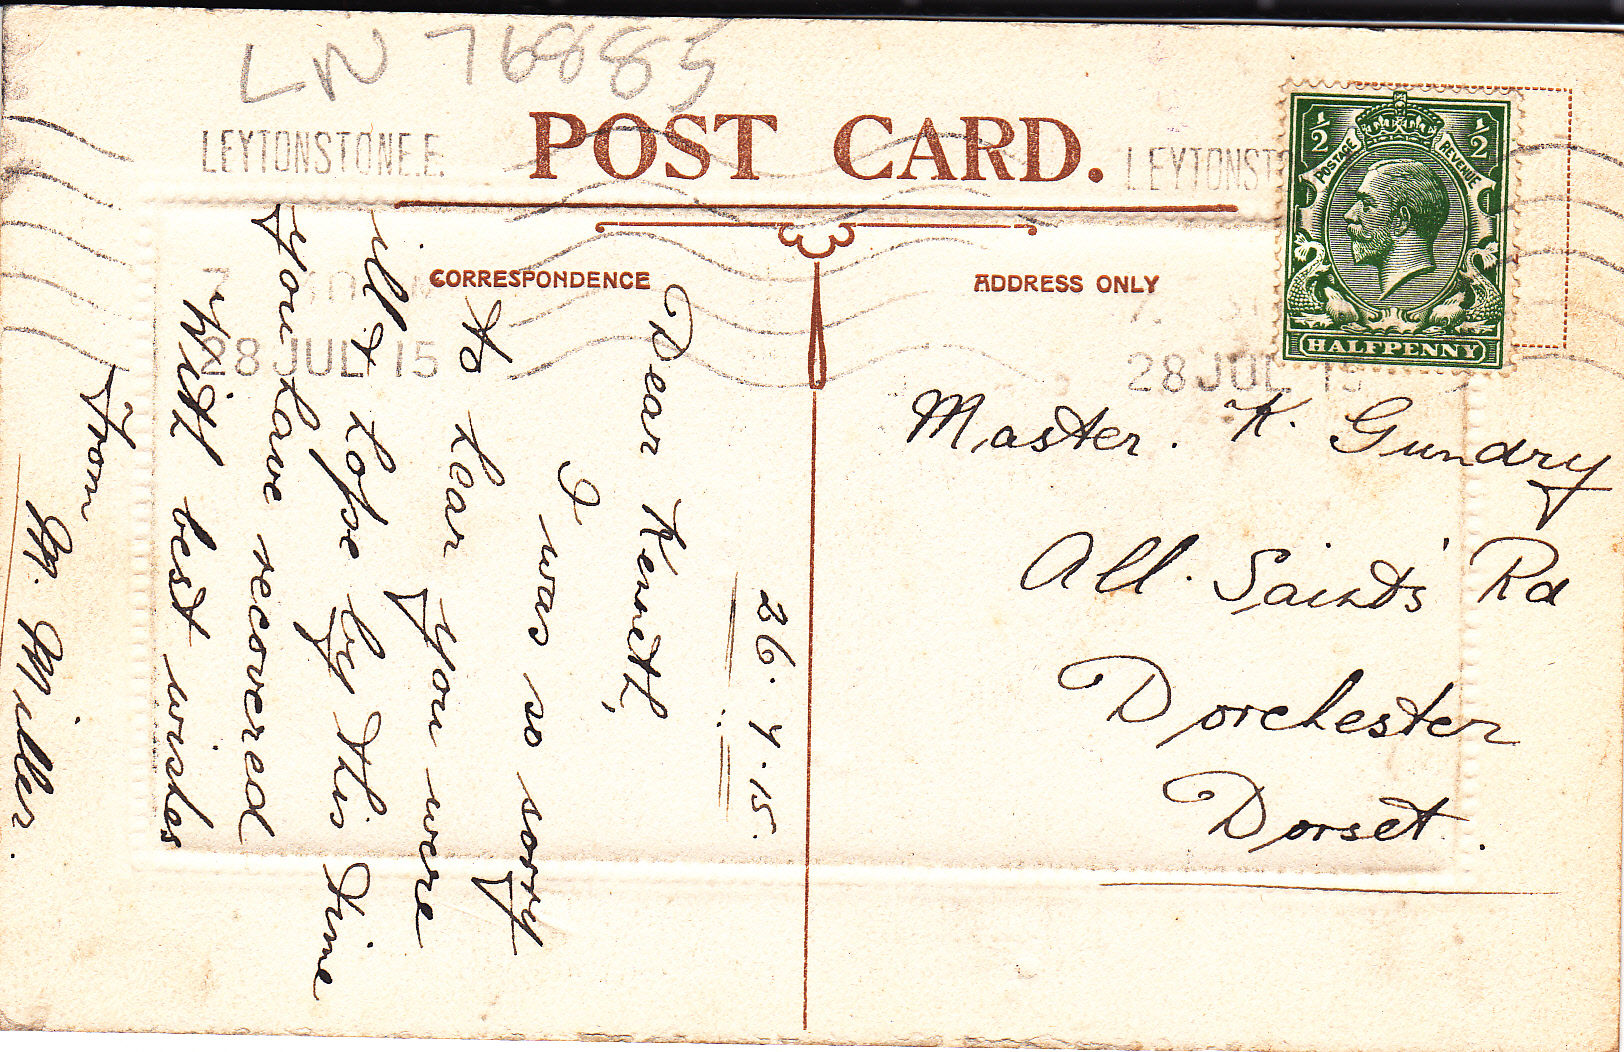 LN 76885
POST CARD.
LEYTONSTONE.E.
28 JUL 15
LEYTONST
28 JUL 15
½ ½
POSTAGE REVENUE
HALFPENNY
CORRESPONDENCE
ADDRESS ONLY
26.7.15.
Dear Kenneth,
I was so sorry
to hear you were
ill & hope by this time
you have recovered
With best wishes
From
M. Miller.
Master. K. Gundry
All. Saints' Rd
Dorchester
Dorset.